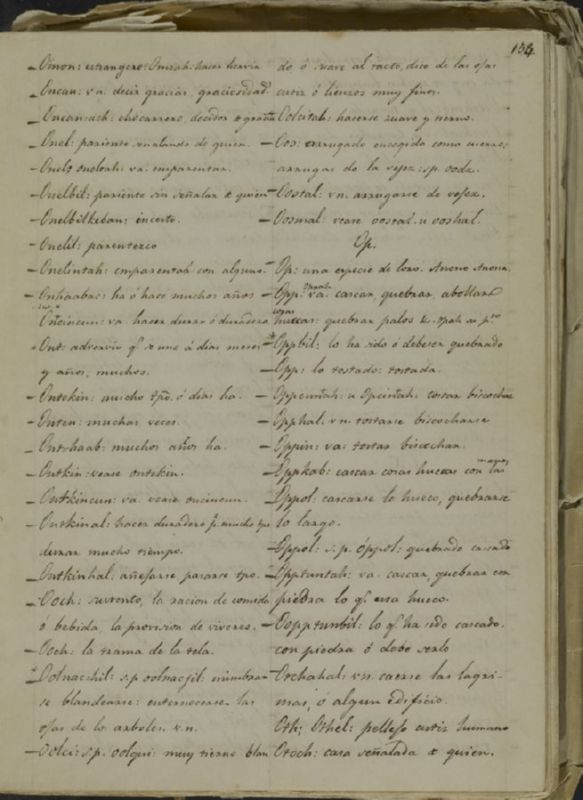 134.
Omon: estrangero: Omzah: hacer hervir
Encan: va. decir gracias, graciosidad.
Encanach: chocarrero, decidor
Onel: pariente señalando de quien.
Onel, onelbah: va. emparentar.
Onelbil: pariente sin señalar de quien
Onelbilkedan: incerto.
Onelil: parentezco
Onelintah: emparentar con alguno.
Onhaabac: ha ó hace muchos años
Onkincun: va. hacer durar ó duradero
Ont: adverbio q.e se une á dias meses
y años, muchos.
Ontekin: mucho tpõ. ó dias ha.
Onten: muchas veces.
Ont-haab: muchos años ha.
Ontkin: vease ontekin.
Ontkincun: va. vease oncincun.
Ontkinal: hacer duradero p.r mucho tpo
durar mucho tiempo.
Ontkinhal: añejarse pasarse tpo.
Ooch: sustento, la racion de comida
ó bebida, la provision de viveres.
Ooch: la trama de la tela.
Oolnachil: s.p. oolnacjil: mimbrar
se blandearse: enternecerse las
ojas de los arboles. v.n.
Oolci: s.p. oolqui: muy tierno blan
do ó suave al tacto, dice de las ojas
cuero ó lienzos muy finos.
Oolcitah: hacerse suave y tierno.
Oox: arrugado encogido como cuero;
arrugas de la vejez: s.p. oodz.
Oostal: v.n. arrugarse de vejez.
Oosmal: vease oostal. u ooshal.
Op.
Op: una especie de loro. Anono Anona.
Opp: va. cascar, quebrar, abollar
cosas huecas: quebrar palos &.
Oppbil: lo ha sido ó debe ser quebrado
Opp: lo tostado: tostada.
Oppcintah: u Opcintah: tostar biscochar
Opphal. v.n. tostarse biscocharse
Oppin: va: tostar biscochar.
Oppkab: cascar cosas huecas con las manos
Oppol: cascarse lo hueco, quebrarse
lo largo.
Oppol: s.p. óppol: quebrado cascado
Opptuntah: va. cascar, quebrar con
piedra lo q.e esta hueco.
Oopptunbil: lo q.e ha sido cascado
con piedra ó debe serlo
Otchahal: v.n. caerse las lagri-
mas, ó algun edificio.
Oth; Othel: pellejo cutis humano
Otoch: casa señalada de quien.